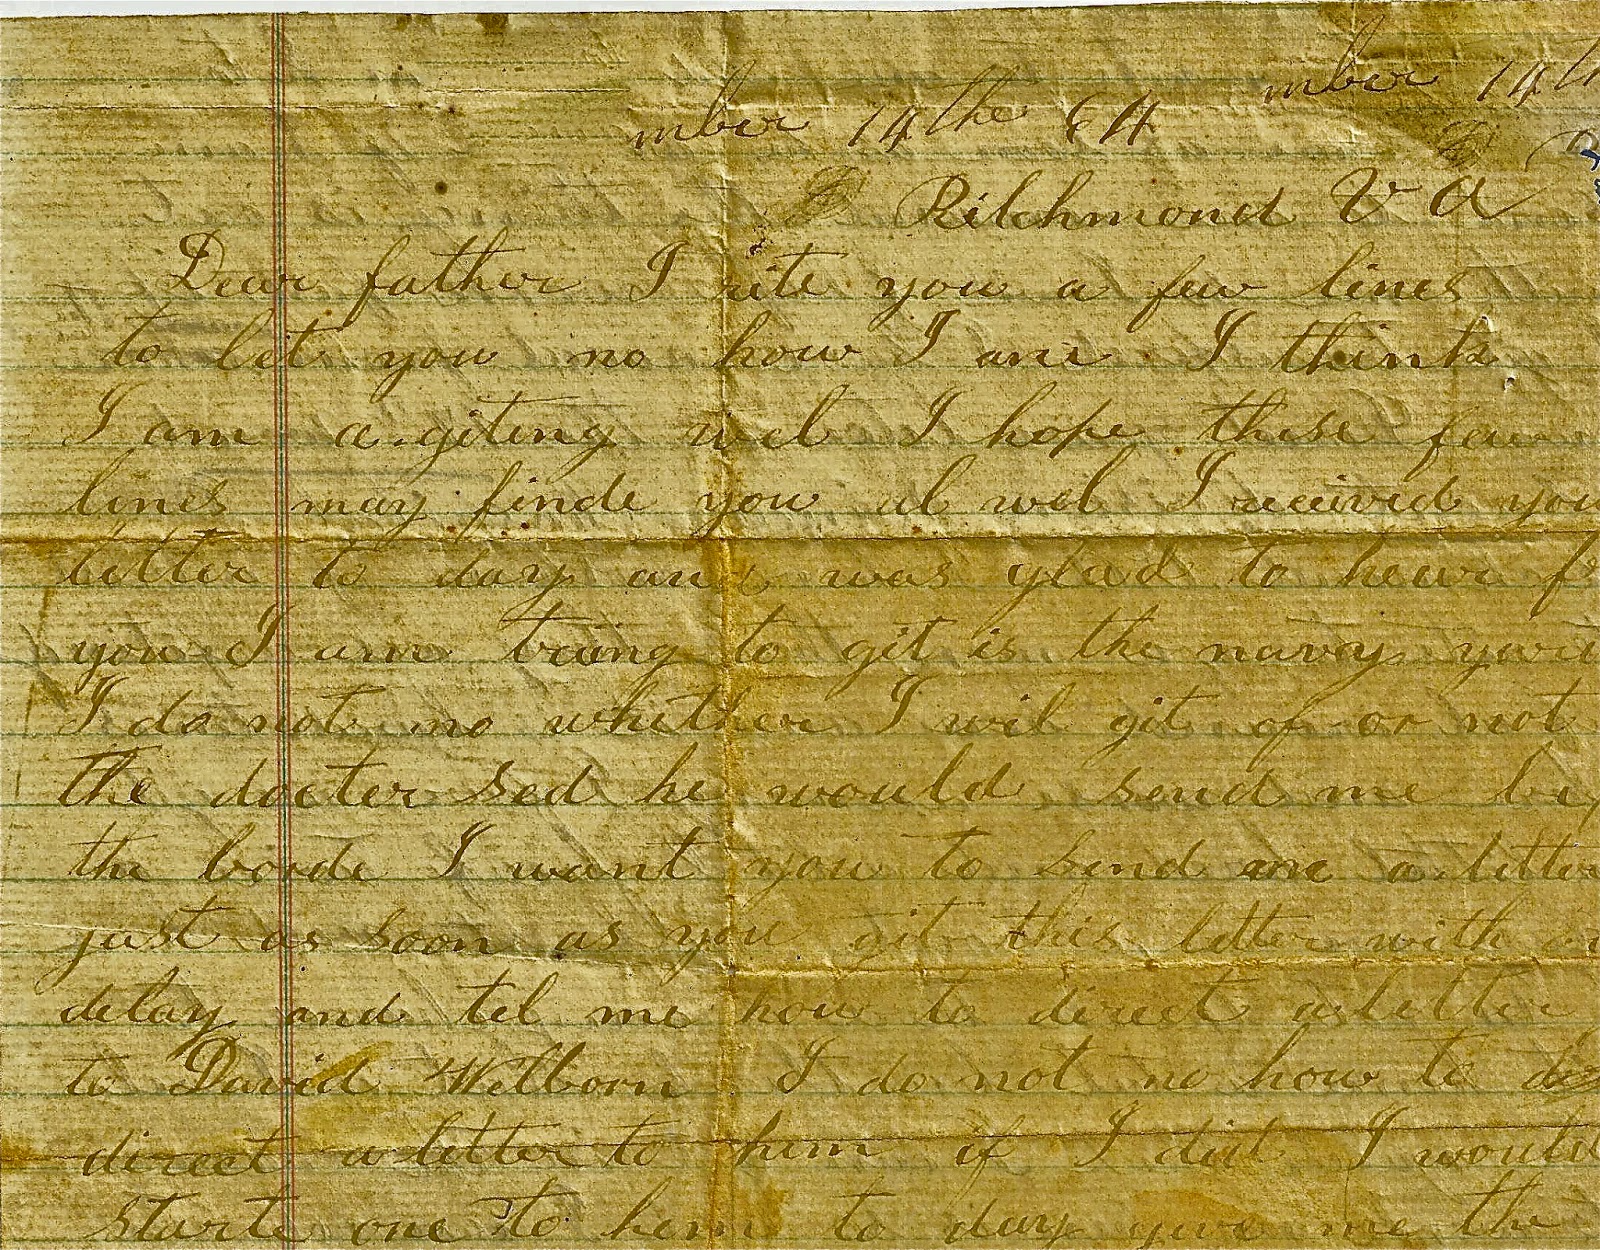 mber 14th
mber 14the 64
Rilchmond V a
Dear father I rite you a few lines
to let you no how I am I think
I am a giting wel I hope these few
lines may finde you al wel I received you
letter to day and was glad to hear f
you I am triing to git is the navy yard
I do not no whether I wil git of or not
the docter sed he would send me by
the borde I want you to send me a letter
just as soon as you git this letter with
delay and tel me how to direct a letter
to David Welborn I do not no how to
direct a letter to him if I did I would
starte one to him to day give me the